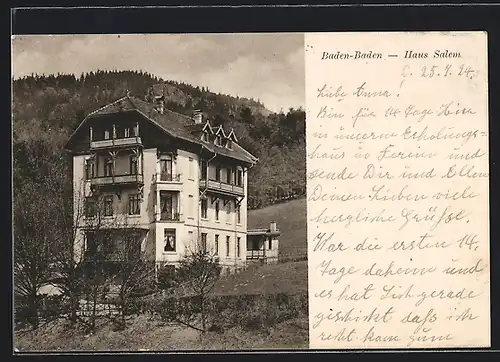 Baden-Baden — Haus Salem
25. 4. 24.
Liebe Anna!
Bin für 14 Tage hier
in unserm Erholungs-
haus in Ferien und
sende Dir und Allen
Deinen Lieben viele
herzliche Grüße.
War die ersten 14
Tage daheim und
es hat sich gerade
geschickt daß ich
recht kam zum